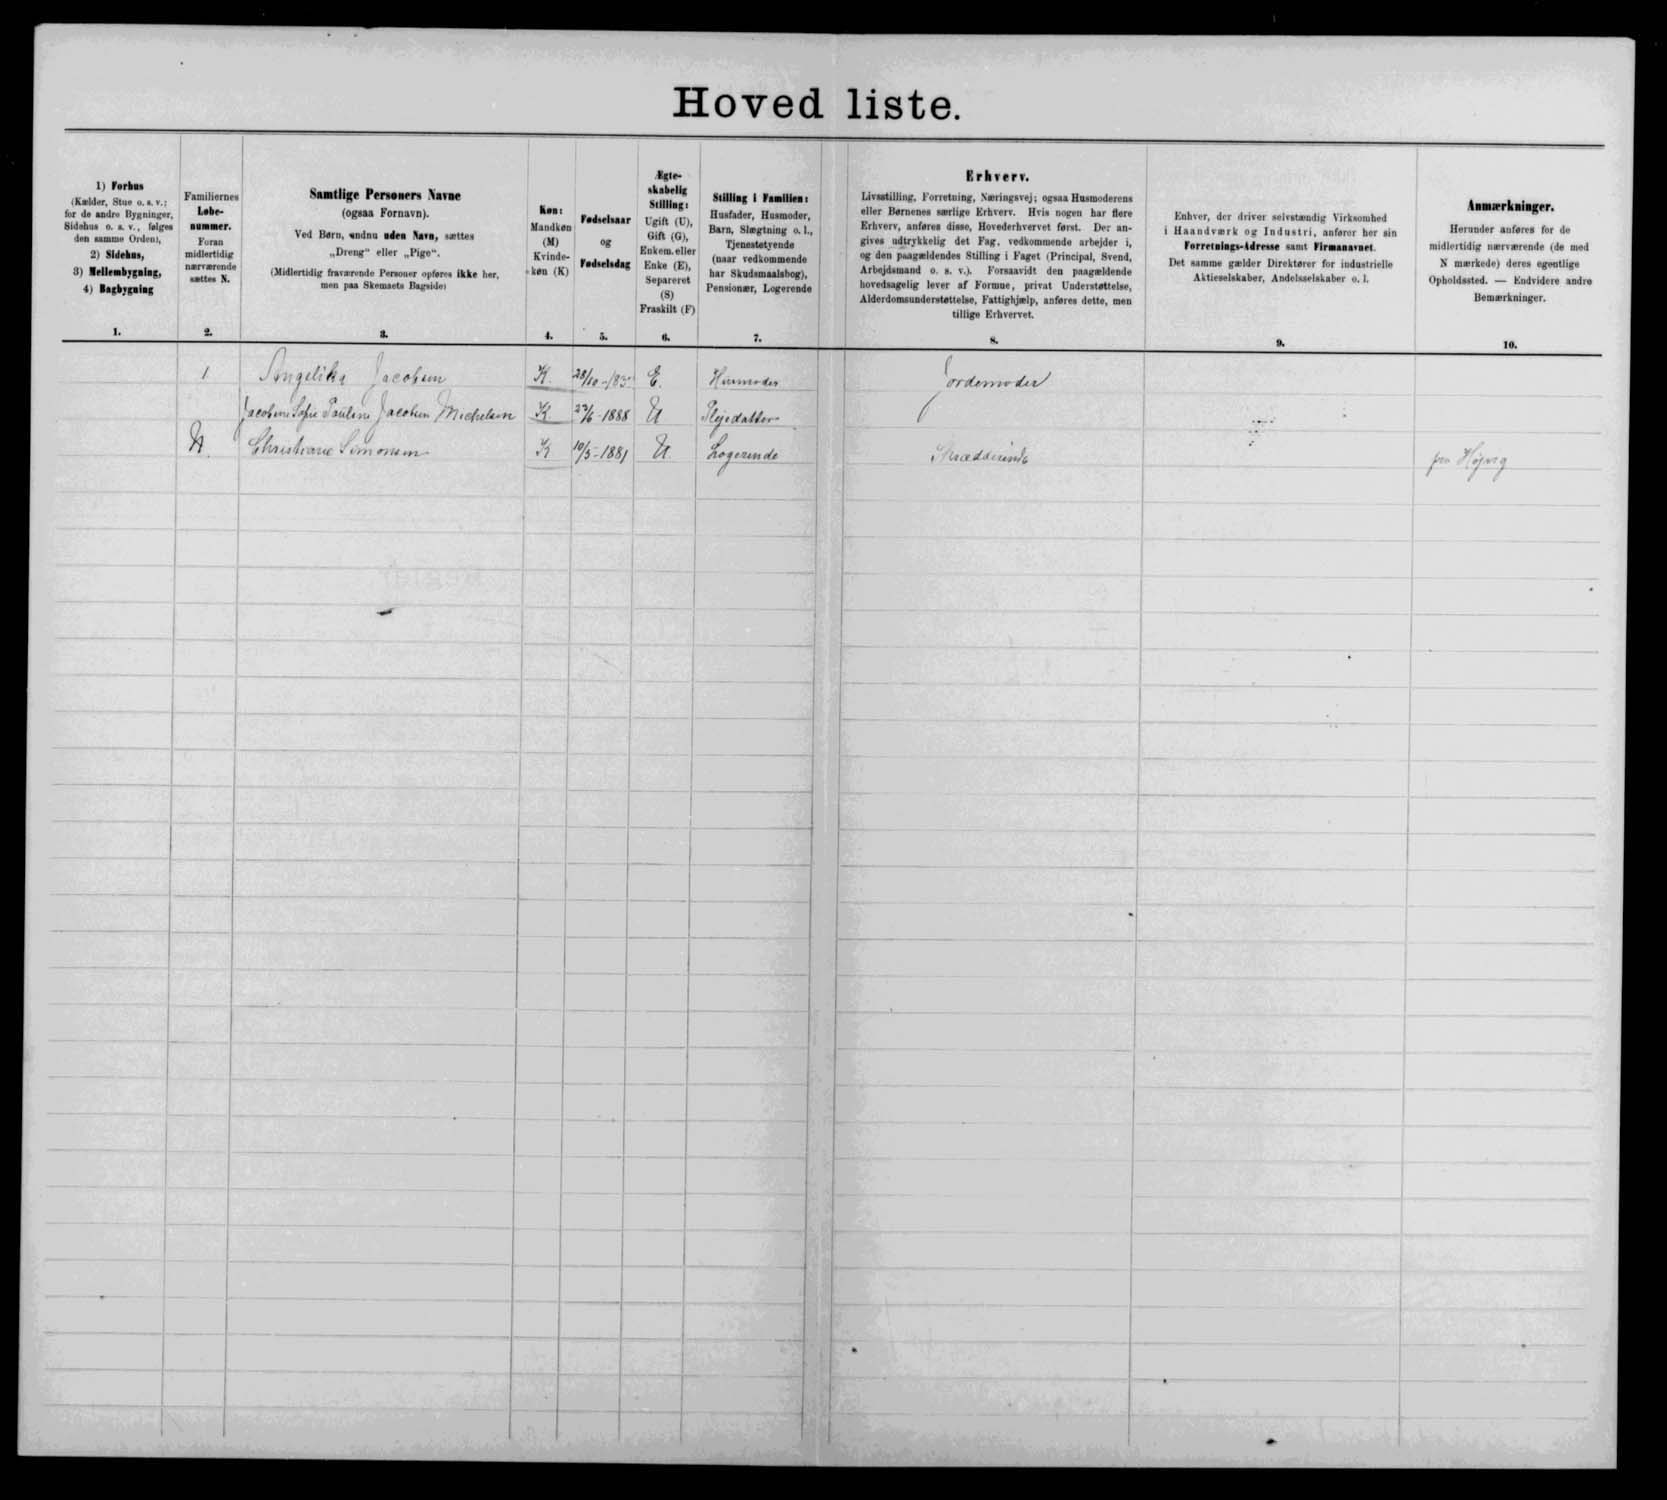 Hoved liste.
1) Forhus
(Kælder, Stue o. s. v.;
for de andre Bygninger,
Sidehus o. s. v., følges
den samme Orden),
2) Sidehus,
3) Mellembygning,
4) Bagbygning
1.
Familiernes
Løbe-
nummer.
Foran
midlertidig
nærværende
sættes N.
2.
Samtlige Personers Navne
(ogsaa Fornavn).
Ved Børn, endnu uden Navn, sættes
„Dreng“ eller „Pige“.
(Midlertidig fraværende Personer opføres ikke her,
men paa Skemaets Bagside)
3.
Køn:
Mandkøn
(M)
Kvinde-
køn (K)
4.
Fødselsaar
og
Fødselsdag
5.
Ægte-
skabelig
Stilling:
Ugift (U),
Gift (G),
Enkem. eller
Enke (E),
Separeret
(S)
Fraskilt (F)
6.
Stilling i Familien:
Husfader, Husmoder,
Barn, Slægtning o. l.,
Tjenestetyende
(naar vedkommende
har Skudsmaalsbog),
Pensionær, Logerende
7.
Erhverv.
Livsstilling, Forretning, Næringsvej; ogsaa Husmoderens
eller Børnenes særlige Erhverv. Hvis nogen har flere
Erhverv, anføres disse, Hovederhvervet først. Der an-
gives udtrykkelig det Fag, vedkommende arbejder i,
og den paagældendes Stilling i Faget (Principal, Svend,
Arbejdsmand o. s. v.). Forsaavidt den paagældende
hovedsagelig lever af Formue, privat Understøttelse,
Alderdomsunderstøttelse, Fattighjælp, anføres dette, men
tillige Erhvervet.
8.
Enhver, der driver selvstændig Virksomhed
i Haandværk og Industri, anfører her sin
Forretnings-Adresse samt Firmanavnet.
Det samme gælder Direktører for industrielle
Aktieselskaber, Andelsselskaber o. l.
9.
Anmærkninger.
Herunder anføres for de
midlertidig nærværende (de med
N mærkede) deres egentlige
Opholdssted. — Endvidere andre
Bemærkninger.
10.
1 Angelika Jacobsen K. 28/10 E. Husmoder Jordemoder
Jacobine Sofie Pauline Jacobsen Michelsen K 6-1888 U Plejedatter
N. Christiane Simonsen K 10/5-1881 U. Logerende Skrædderinde fra Højvig